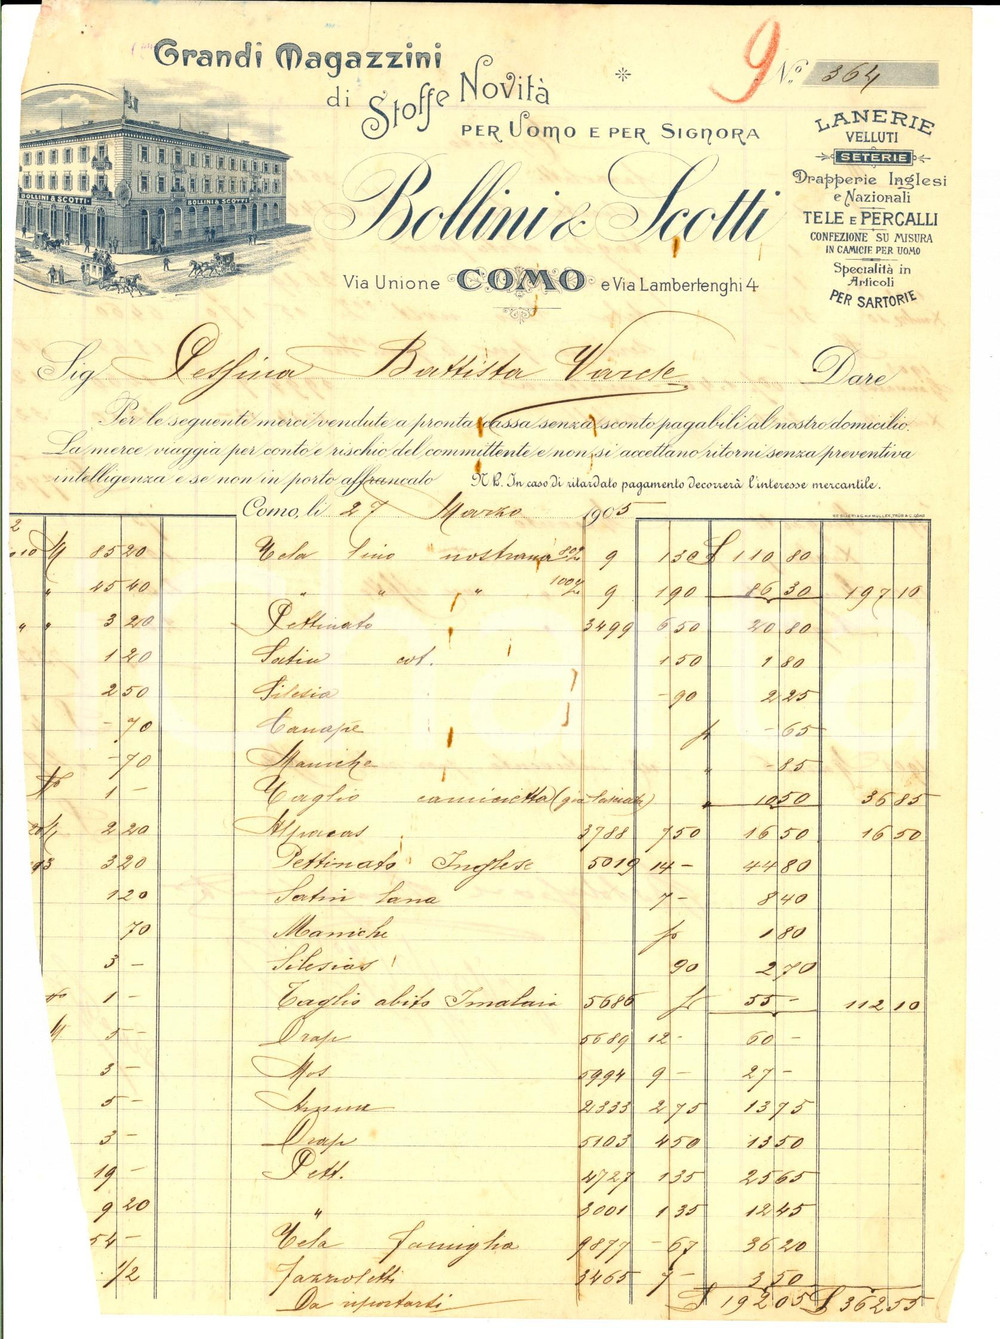 Grandi Magazzini
di Stoffe Novità
PER UOMO E PER SIGNORA
Bollini & Scotti
Via Unione COMO e Via Lambertenghi 4
9
N.º 364
LANERIE
VELLUTI
SETERIE
Drapperie Inglesi
e Nazionali
TELE E PERCALLI
CONFEZIONE SU MISURA
IN CAMICIE PER UOMO
Specialità in
Articoli
PER SARTORIE
BOLLINI & SCOTTI
BOLLINI & SCOTTI
Sig Pessina Battista Varese Dare
Per le seguenti merci vendute a pronta cassa senza sconto pagabili al nostro domicilio.
La merce viaggia per conto e rischio del committente e non si accettano ritorni senza preventiva
intelligenza e se non in porto affrancato N.B. In caso di ritardato pagamento decorrerà l'interesse mercantile.
Como, li 27 Marzo 1905
M 85 20 Tela lino nostrana 80% 9 1 30 £ 110 80
" 45 40 " " " 100% 9 1 90 86 30 197 10
" " 3 20 Pettinato 3499 6 50 20 80
1 20 Satin cot. 1 50 1 80
2 50 Silesia - 90 2 25
- 70 Canape - 65
- 70 Maniche " - 85
1 - Taglio camicetta " 10 50 36 85
M 2 20 Alpacas 3788 7 50 16 50 16 50
3 20 Pettinato Inglese 5019 14 - 44 80
1 20 Satin lana 7 - 8 40
70 Maniche 1 80
3 - Silesias 90 2 70
1 - Taglio abito 5686 55 - 112 10
M 5 - Drap 5689 12 - 60 -
3 - Mos 5994 9 - 27 -
5 - 2333 2 75 13 75
3 - Drap 5103 4 50 13 50
19 - Pett. 4727 1 35 25 65
9 20 " 3001 1 35 12 45
54 - Tela famiglia 9877 - 67 36 20
1/2 Fazzoletti 3465 7 - 3 50
Da riportarsi £ 192 05 £ 362 55